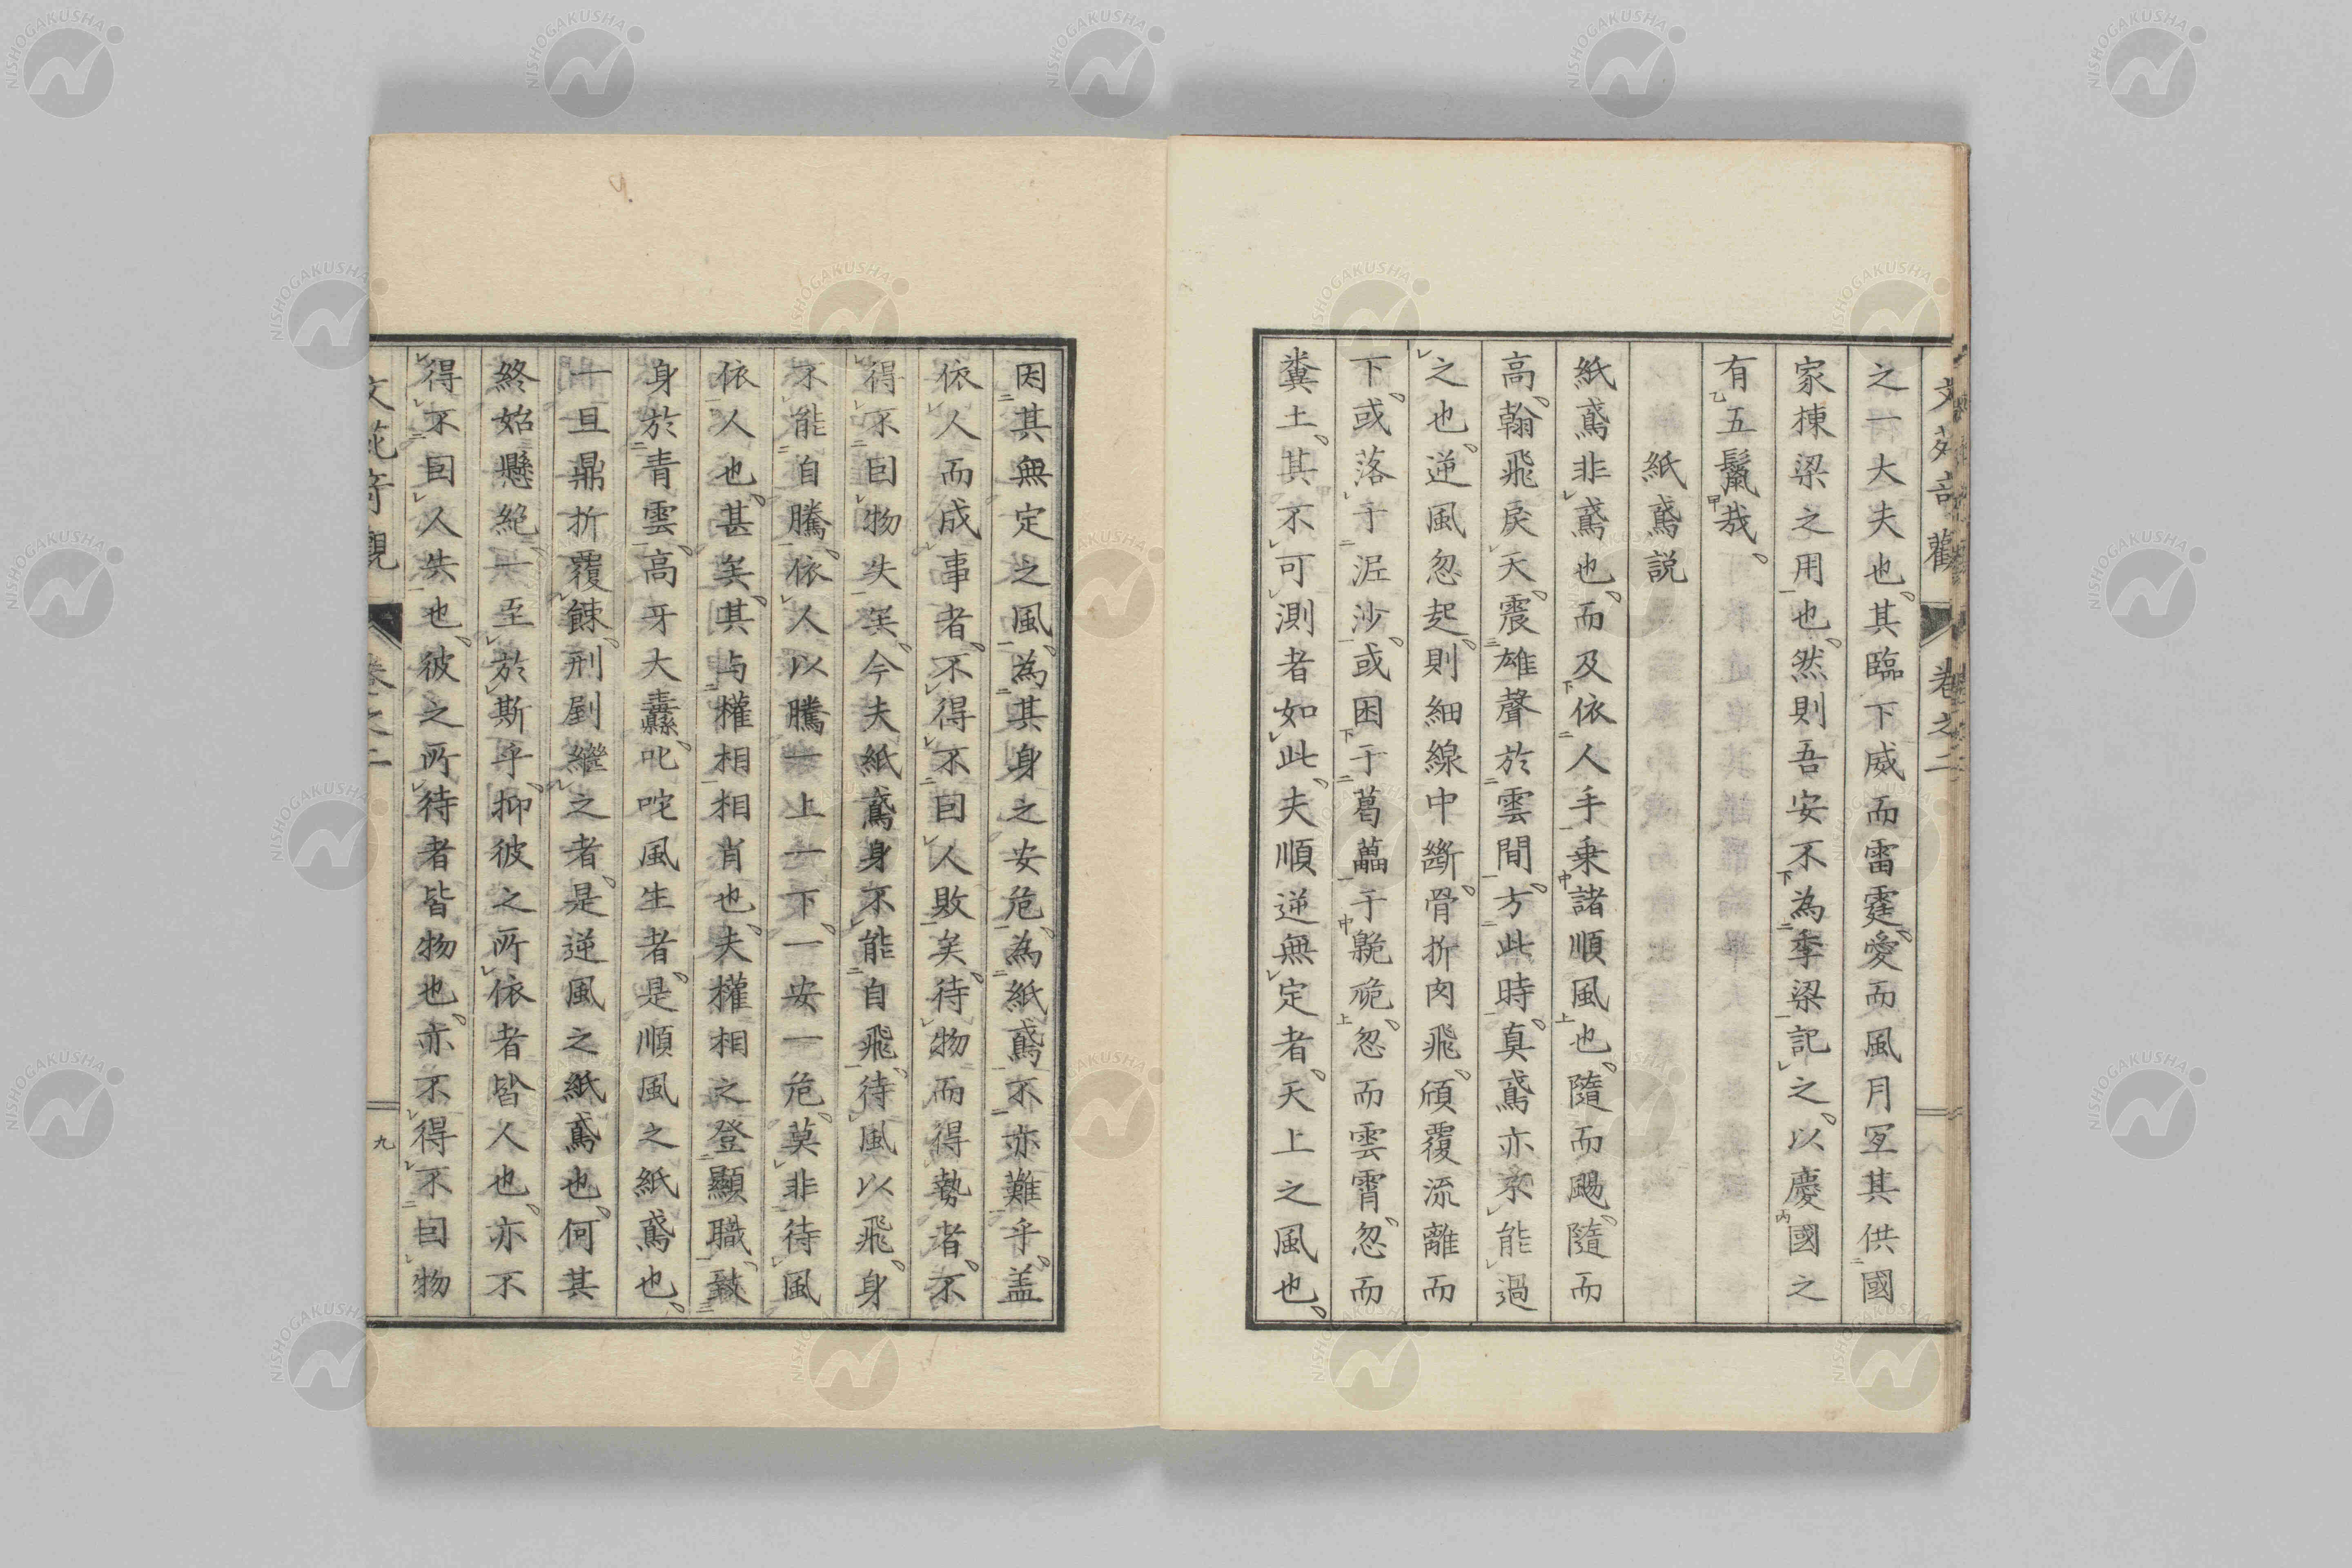 之一大夫也其臨下威而雷霆愛而風月冝其供國
家棟梁之用也然則吾安不為季梁記之以慶國之
有五鬣哉
紙鳶説
紙鳶非鳶也而及依人手乗諸順風也隨而颺隨而
高翰飛戾天震雄聲於雲間方此時真鳶亦不能過
之也逆風忽起則細線中斷骨折肉飛頎覆流離而
下或落于泥沙或困于葛藟于臲卼忽而雲霄忽而
糞土其不可測者如此夫順逆無定者天上之風也
因其無定之風為其身之安危為紙鳶不亦難乎盖
依人而成事者不得不囙人敗矣待物而得勢者不
得不囙物失矣今夫紙鳶身不能自飛待風以飛身
不能自騰依人以騰一上一下一安一危莫非待風
依人也甚矣其与權相相肖也夫權相之登顯職致
身於青雲高牙大纛叱咤風生者是順風之紙鳶也
一旦鼎折覆餗刑剭繼之者是逆風之紙鳶也何其
終始懸絶一至於斯乎抑彼之所依者皆人也亦不
得不囙人失也彼之所待者皆物也亦不得不囙物
文苑奇觀 卷之二 九
NISHOGAKUSHA